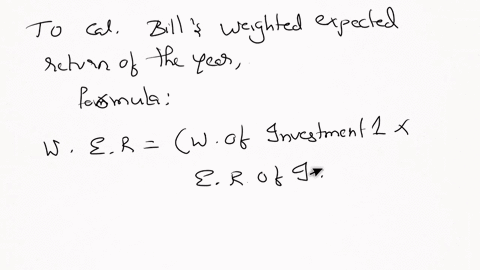 To Cal. Bill's weighted expected
return of the year,
Formula:
W. E.R = (W. of Investment 1 ×
E. R of I